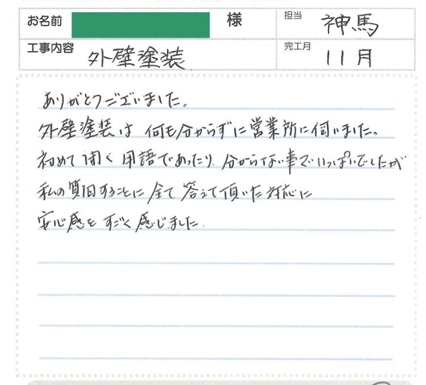 お名前 様 担当 神馬
工事内容 外壁塗装 完工月 11月
ありがとうございました。
外壁塗装は何も分からずに営業所に伺いました。
初めて聞く用語であったり分からない事でいっぱいでしたが
私の質問することに全て答えて頂いた対応に
安心感をすごく感じました